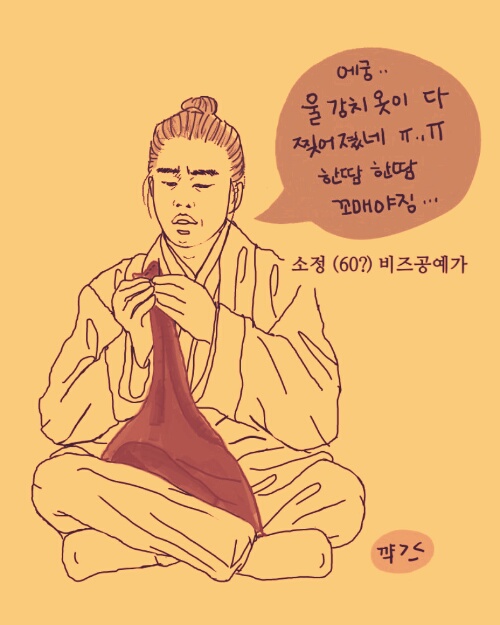 에궁..
울 강치 옷이 다
찢어졌네 ㅠ.,ㅠ
한땀 한땀
꼬매야징...
소정 (60?) 비즈공예가